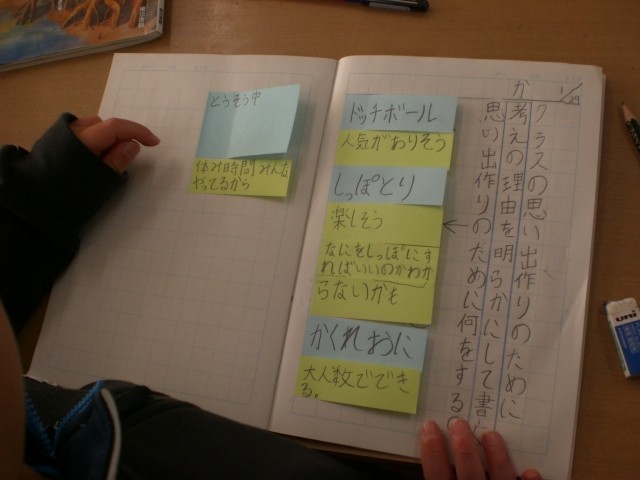 1/29
クラスの思い出作りのために
か
考えの理由を明らかにして書
思い出作りのために何をする
ドッチボール
人気がありそう
しっぽとり
楽しそう
なにをしっぽにす
ればいいのかわか
らないかも
かくれおに
大人数ででき
る。
とうそう中
休み時間みんな
やってるから
uni